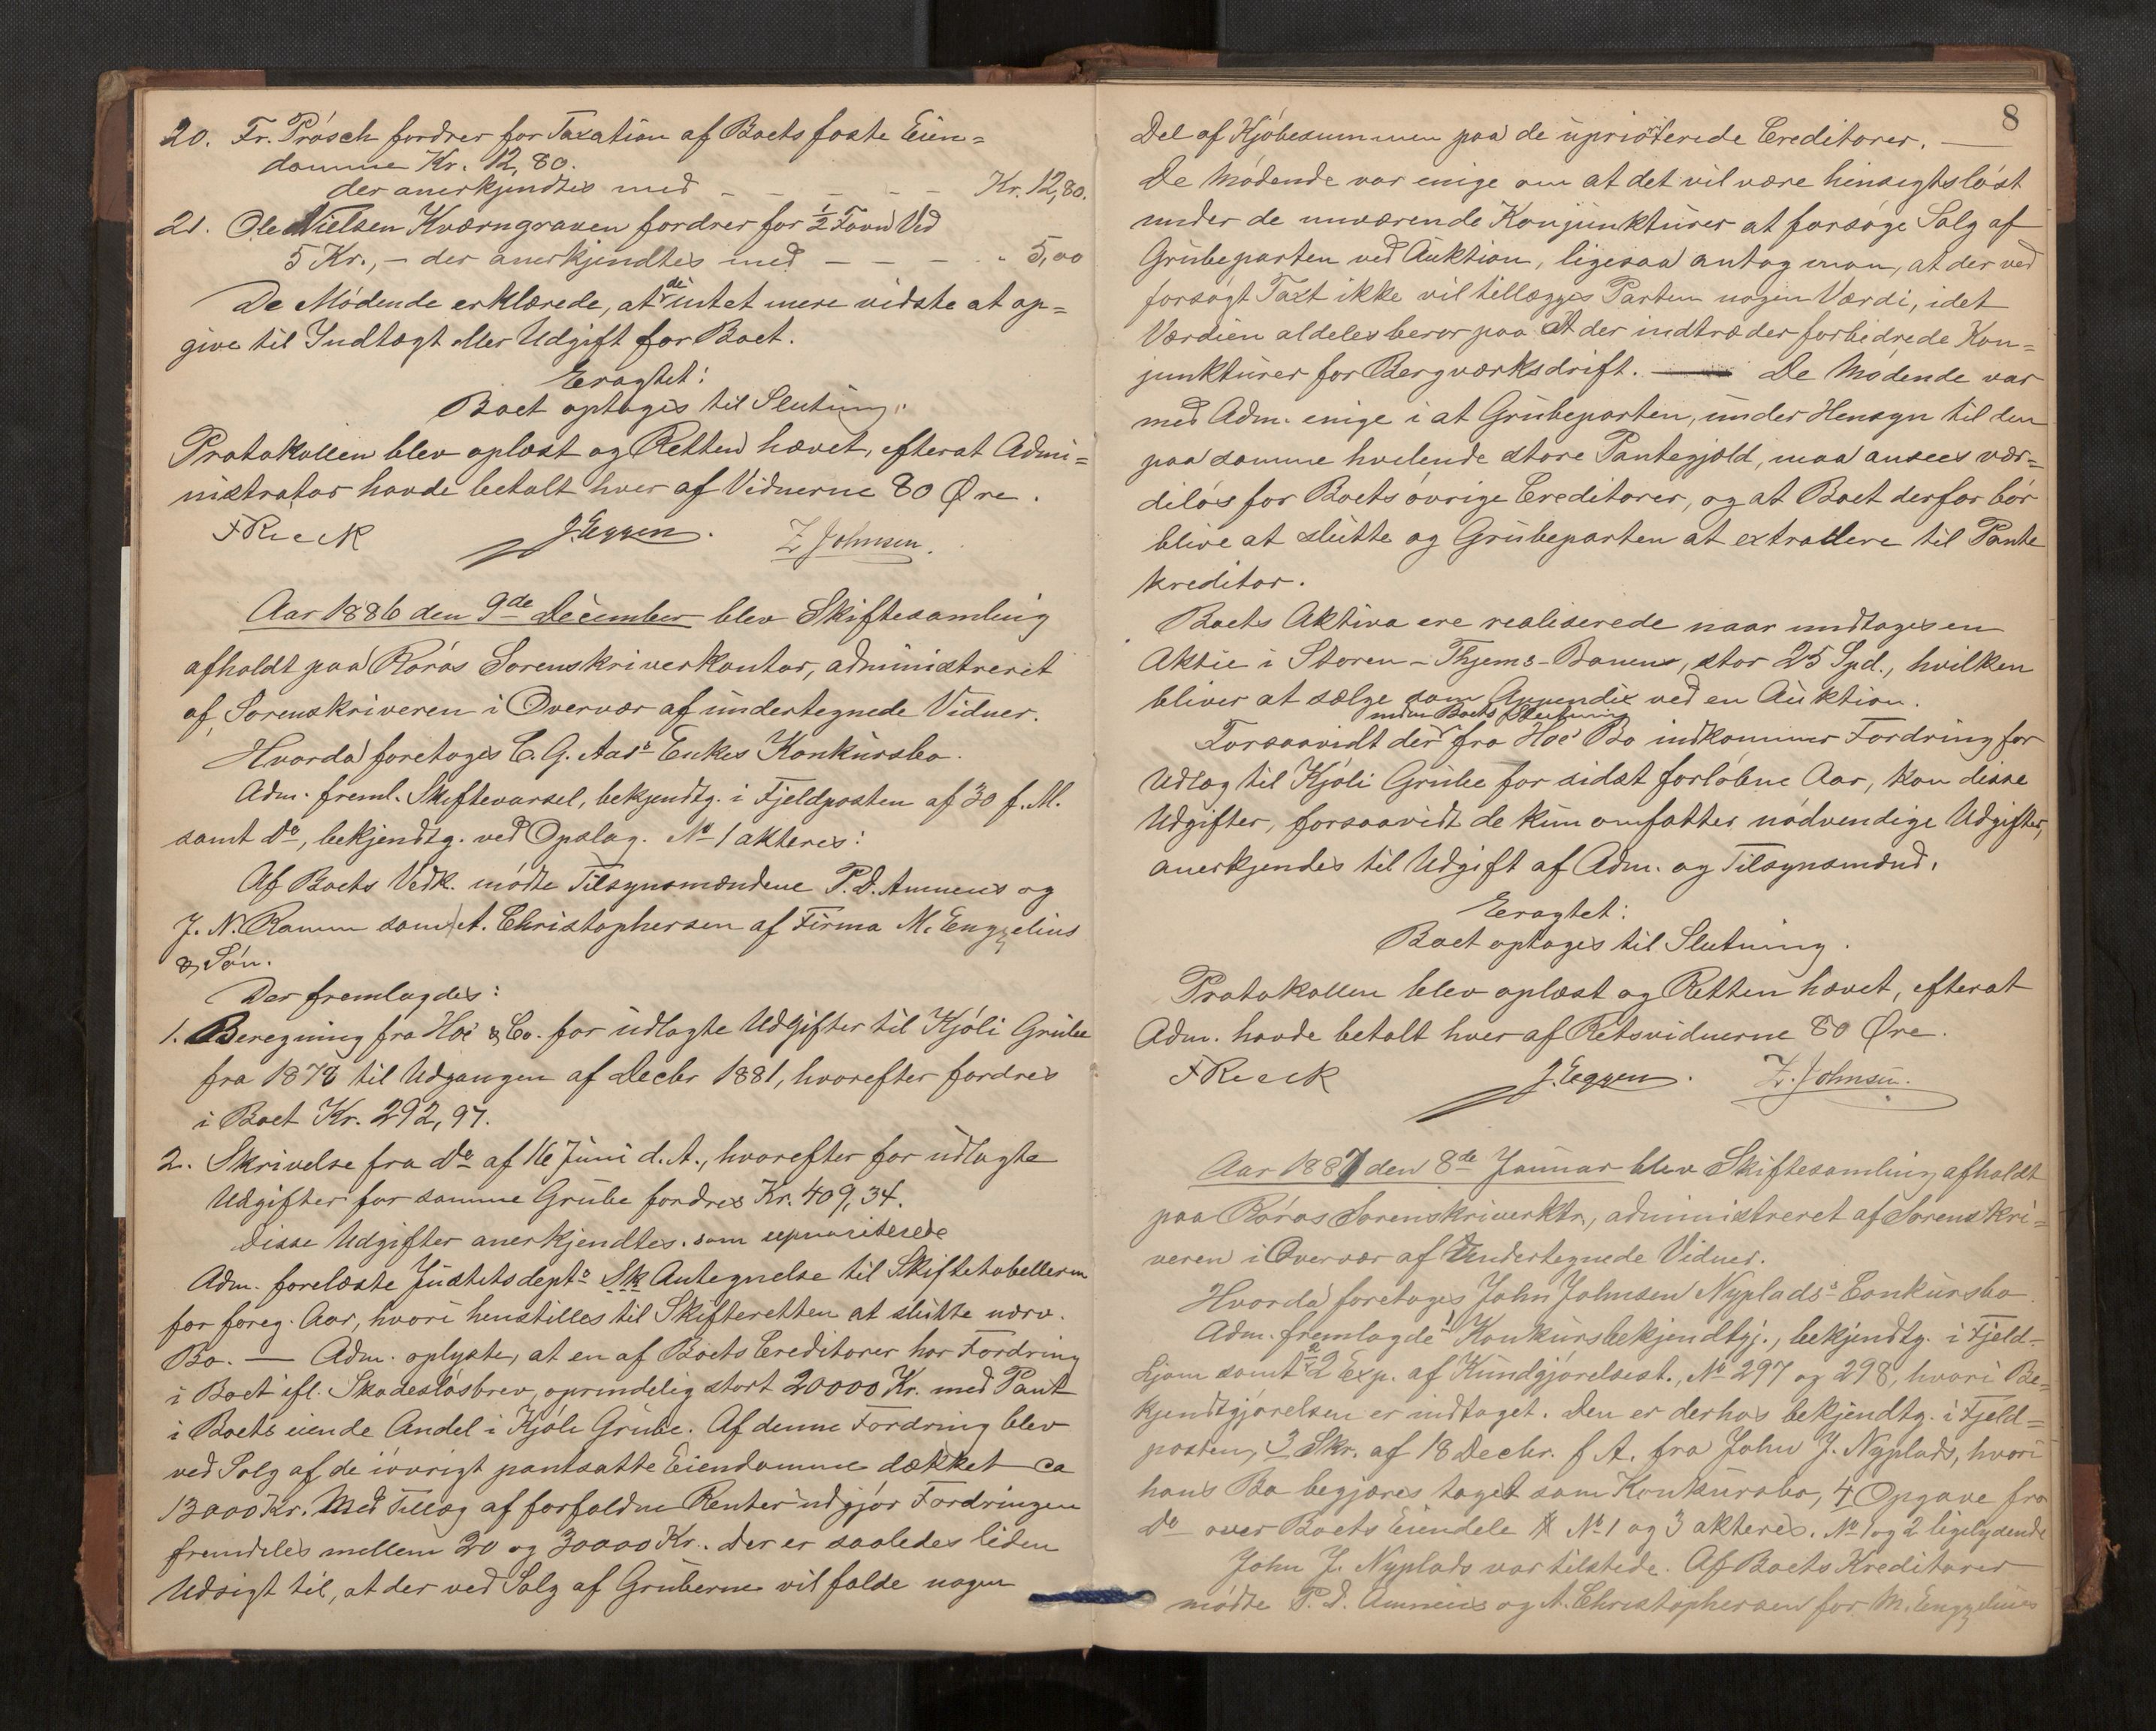 20. Fr. Prösch fordrer for Taxation af Boets faste Eien=
domme Kr. 12,80.
der anerkjendtes med — — — — — Kr. 12,80.
21. Ole Nielsen Kværngraven fordrer for ½ Favn Ved
5 Kr., – der anerkjendtes med — — — „ 5,00
De Mödende erklærede, at de intet mere vidste at op=
give til Indtægt eller Udgift for Boet.
Eragtet:
Boet optages til Slutning.
Protokollen blev oplæst og Retten hævet, efterat Admi=
nistrator havde betalt hver af Vidnerne 80 Øre.
FRieck J. Eggen. Z. Johnsen.
Aar 1886 den 9de December blev Skiftesamling
afholdt paa Röros Sorenskriverkontor, administreret
af Sorenskriveren i Overvær af undertegnede Vidner.
Hvorda foretoges C. G. Aas's Enkes Konkursbo.
Adm. freml. Skiftevarsel, bekjendtg. i Fjeldposten af 30 f. M.
samt do, bekjendtg. ved Opslag. No 1 akteres:
Af Boets Vedk. mödte Tilsynsmændene P. D. Amneus og
J. N. Ramm samt A. Christophersen af Firma M. Engzelius
& Sön.
Der fremlagdes:
1. Beregning fra Hoë & Co. for udlagte Udgifter til Kjöli Grube
fra 1878 til Udgangen af Decbr 1881, hvorefter fordres
i Boet Kr. 292,97.
2. Skrivelse fra do af 16 Juni d. A., hvorefter for udlagte
Udgifter for samme Grube fordres Kr. 409,34.
Disse Udgifter anerkjendtes. som uprioriterede
Adm. forelæste Justitsdepts Antegnelse til Skiftetabellerne
for foreg. Aar, hvori henstilles til Skifteretten at slutte nærv.
Bo. — Adm. oplyste, at en af Boets Creditorer har Fordring
i Boet ifl. Skadeslösbrev, oprindelig stort 20000 Kr. med Pant
i Boets eiende Andel i Kjöli Grube. Af denne Fordring blev
ved Salg af de iövrigt pantsatte Eiendomme dækket ca
13000 Kr. Med Tillæg af forfaldne Renter udgjör Fordringen
fremdeles mellem 20 og 30000 Kr. Der er saaledes liden
Udsigt til, at der ved Salg af Gruberne vil falde nogen
8
Del af Kjöbesummen paa de uprioriterede Creditorer. —
De Mödende var enige om at det vil være hensigtslöst
under de nuværende Konjunkturer at forsöge Salg af
Grubeparten ved Auktion, ligesaa antog man, at der ved
forsögt Taxt ikke vil tillægges Parten nogen Værdi, idet
Værdien aldeles beror paa At der indtræder forbedrede Kon=
junkturer for Bergværksdrift. — De Mödende var
med Adm. enige i at Grubeparten, under Hensyn til den
paa samme hvilende store Pantegjæld, maa ansees vær=
dilös for Boets övrige Creditorer, og at Boet derfor bör
blive at slutte og Grubeparten at extradere til Pante
kreditor.
Boets Aktiva ere realiserede naar undtages en
Aktie i Støren-Thjems-Banen, stor 25 Spd., hvilken
bliver at sælge som Appendix ved en Auktion.
inden Boets Slutning
Forsaavidt der fra Hoë's Bo indkommer Fordring for
Udlæg til Kjöli Grube for sidst forlöbne Aar, kan disse
Udgifter, forsaavidt de kun omfatter nödvendige Udgifter,
anerkjendes til Udgift af Adm. og Tilsynsmænd.
Eragtet:
Boet optages til Slutning.
Protokollen blev oplæst og Retten hævet, efterat
Adm. havde betalt hver af Retsvidnerne 80 Øre.
FRieck J. Eggen. Z. Johnsen.
Aar 1887 den 8de Januar blev Skiftesamling afholdt
paa Röros Sorenskriverktr., administreret af Sorenskri=
veren i Overvær af Undertegnede Vidner.
Hvorda foretoges John Johnsen Nyplads's Conkursbo.
Adm. fremlagde 1 Konkursbekjendtgj., bekjendtg. i Fjeld-
Ljom samt 2 2 Exp. af Kundgjörelsest., No 297 og 298, hvori Be=
kjendtgjörelsen er indtaget. Den er derhos bekjendtg. i Fjeld=
posten, 3 Skr. af 18 Decbr. f. A. fra John J. Nyplads, hvori
hans Bo begjæres taget som Konkursbo, 4 Opgave fra
do over Boets Eiendele No 1 og 3 akteres. No 1 og 2 ligelydende
John J. Nyplads var tilstede. Af Boets Kreditorer
mödte P. D. Amneus og A. Christophersen for M. Engzelius